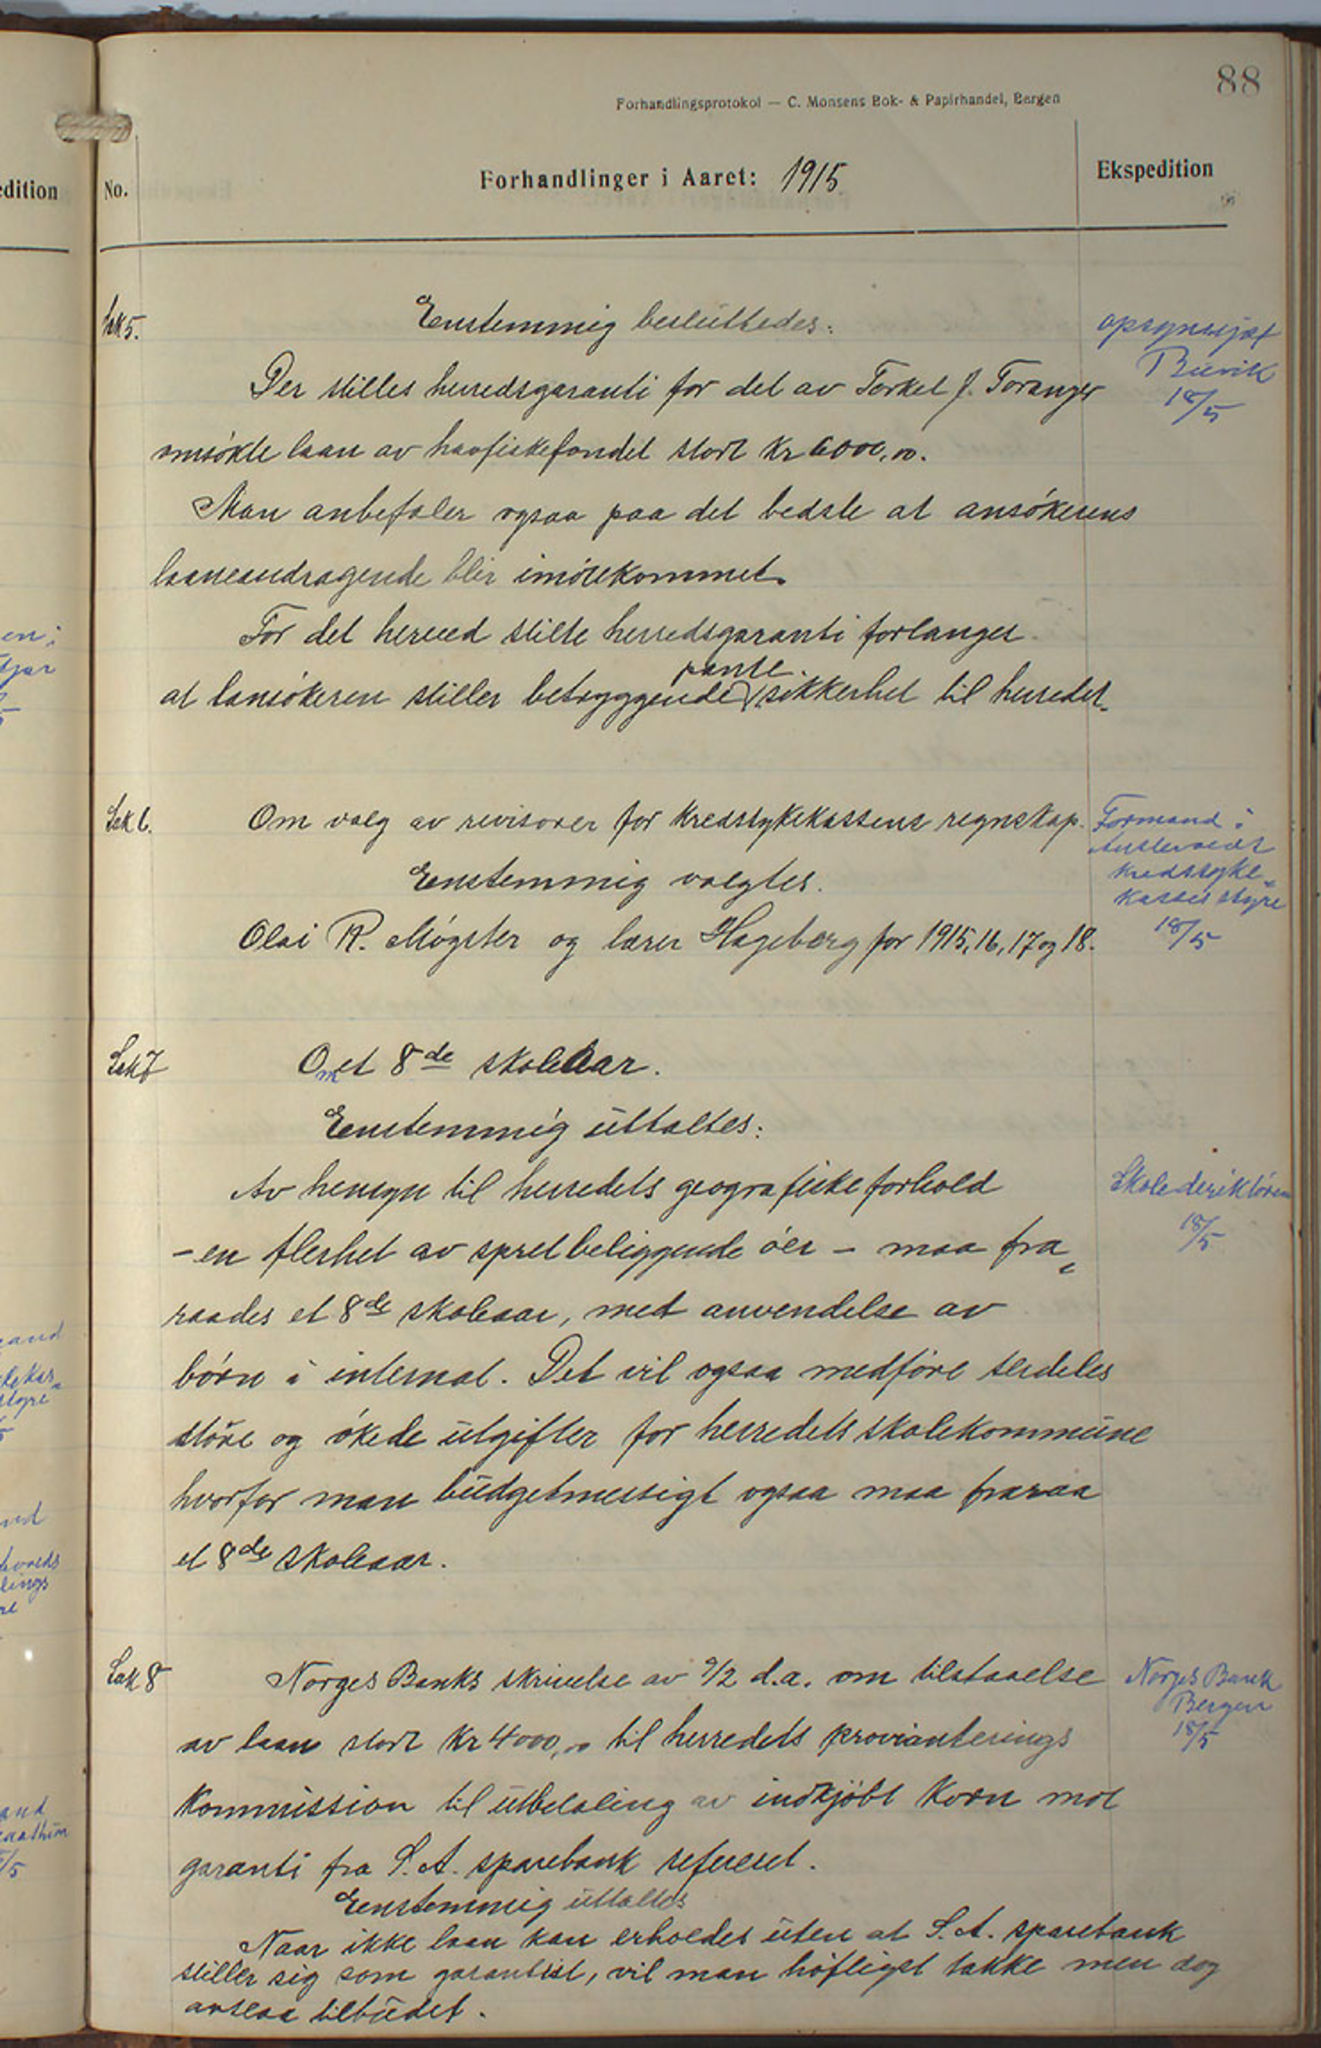 88
Forhandlingsprotokol — C. Monsens Bok- & Papirhandel, Bergen
edition
No.
Forhandlinger i Aaret: 1915
Ekspedition
Sak 5.
Enstemmig besluttedes:
opsynssjef
Buvik
18/5
Der stilles herredsgaranti for det av Torkel J. Toranger
omsökte laan av havfiskefondet stort kr 6000,00.
Man anbefaler ogsaa paa det bedste at ansökerens
laaneandragende blir imötekommet.
For det herved stilte herredsgaranti forlanges
pante.
at lansökeren stiller betryggende sikkerhet til herredet.
Sak 6.
Om valg av revisorer for kredssykekassens regnskap.
Enstemmig valgtes.
Olai R. Møgster og lærer Hageberg for 1915, 16, 17 og 18.
Formand i
Austevold
kredssyke-
kasses styre
18/5
Sak 7
Om et 8de skoleaar.
Enstemmig uttaltes:
Av hensyn til herredets geografiske forhold
- en flerhet av spretbeliggende öer - maa fra-
raades et 8de skoleaar, med anvendelse av
börn i internat. Det vil ogsaa medföre serdeles
störe og ökede utgifter for herredets skolekommune
hvorfor man budgetmessigt ogsaa maa fraraa
et 8de skoleaar.
Skolederiktören
18/5
Sak 8
Norges Banks skrivelse av 9/2 d.a. om tilstaaelse
av laan stort kr 4000,00 til herredets provianterings
kommission til utbetaling av indkjöbt korn mot
garanti fra S. A. sparebank referert.
Enstemmig uttaltes
Naar ikke laan kan erholdes uten at S. A. sparebank
stiller sig som garantist, vil man höfligst takke men dog
avslaa tilbudet.
Norges Bank
Bergen
18/5